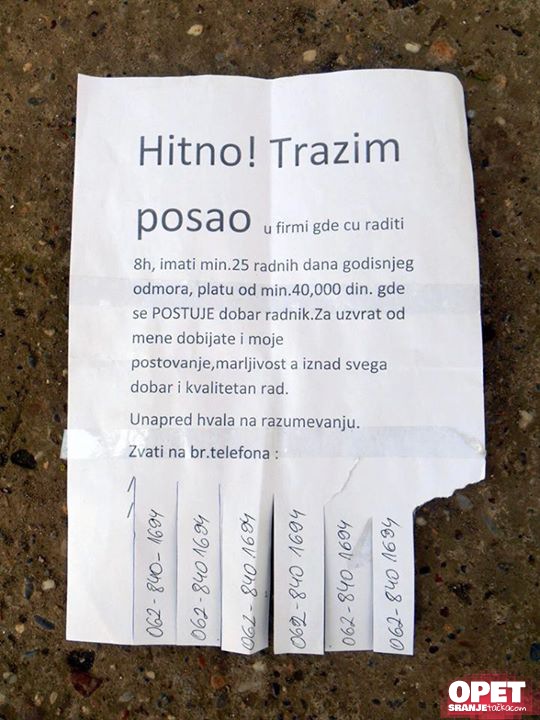 Hitno! Trazim
posao u firmi gde cu raditi
8h, imati min.25 radnih dana godisnjeg
odmora, platu od min.40,000 din. gde
se POSTUJE dobar radnik.Za uzvrat od
mene dobijate i moje
postovanje,marljivost a iznad svega
dobar i kvalitetan rad.
Unapred hvala na razumevanju.
Zvati na br.telefona :
062-840-1694
062-840 1694
062-840 1694
062-840 1694
062-840 1694
062-840 1694
OPET
SRANJEtačkacom